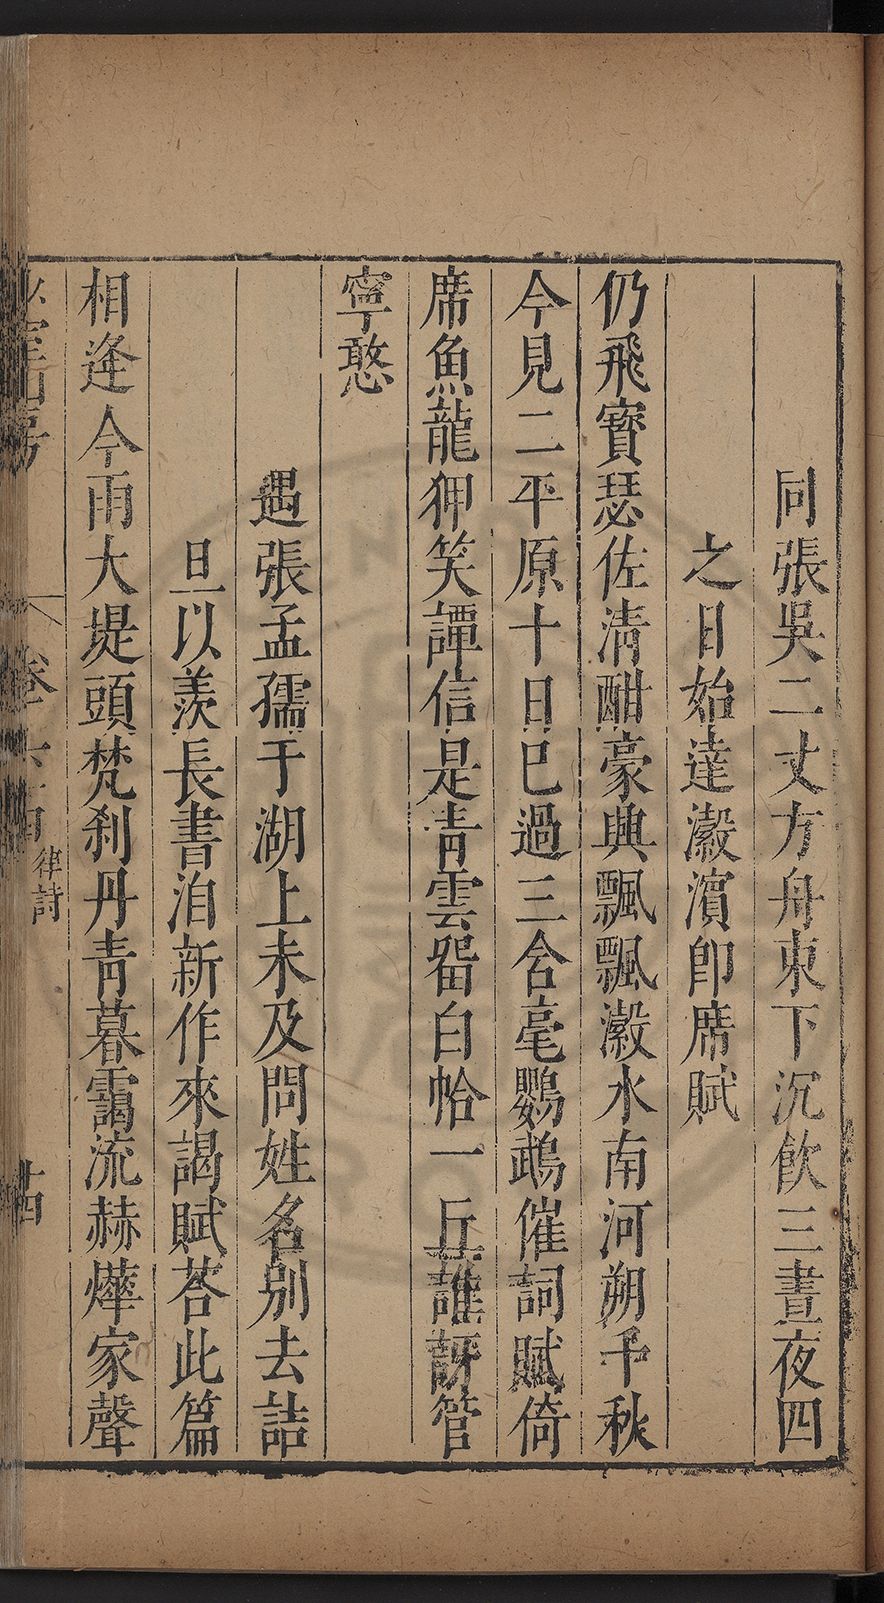 同張吳二丈方舟東下沉飲三晝夜四
之日始達瀫濱卽席賦
仍飛寶瑟佐清酣豪興飄飄瀫水南河朔千秋
今見二平原十日已過三含毫鸚鵡催詞賦倚
席魚龍狎笑譚信是青雲畱白帢一丘誰訝管
寧憨
遇張孟孺于湖上未及問姓名別去詰
旦以羨長書洎新作來謁賦荅此篇
相逢今雨大堤頭梵刹丹青暮靄流赫燁家聲
律詩